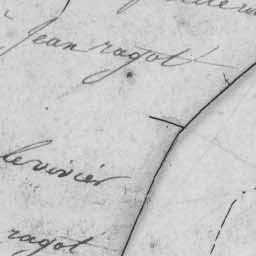 Jean ragot
levivier
ragot